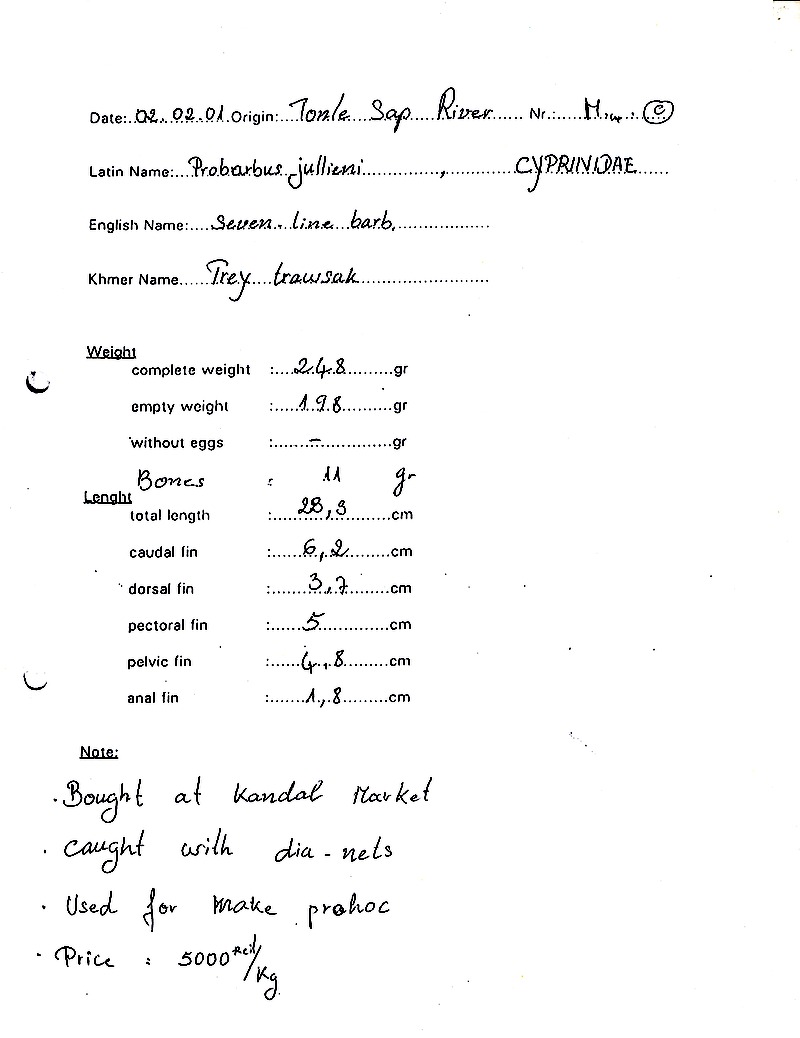 Date: 02.02.01 Origin: Tonle Sap River Nr.: ©
Latin Name: Probarbus jullieni, CYPRINIDAE
English Name: Seven line barb.
Khmer Name Trey trawsak
Weight
complete weight : 248 gr
empty weight : 198 gr
without eggs : – gr
Bones : 11 gr
Lenght
total length : 28,3 cm
caudal fin : 6,2 cm
dorsal fin : 3,7 cm
pectoral fin : 5 cm
pelvic fin : 4,8 cm
anal fin : 1,8 cm
Note:
· Bought at Kandal Market
· Caught with dia-nets
· Used for make prohoc
· Price : 5000 Reil/Kg